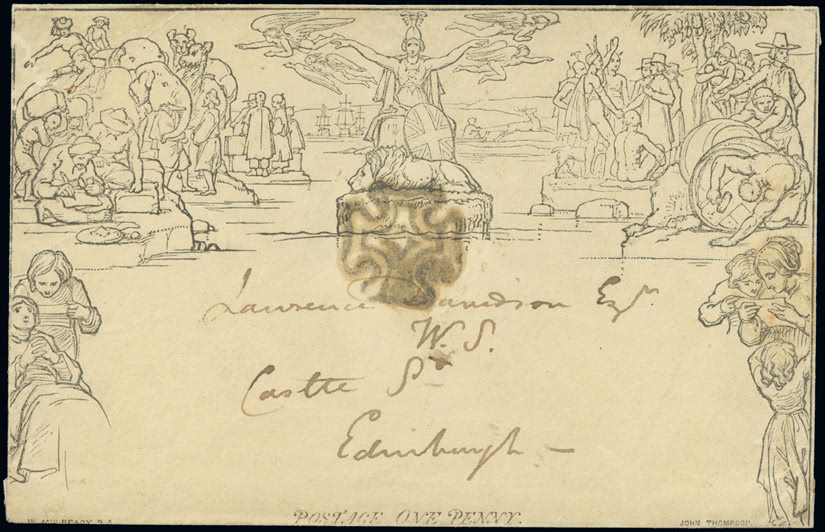 Lawrence Davidson Esqr
W. S.
Castle St
Edinburgh —
W. MULREADY R.A.
POSTAGE ONE PENNY.
JOHN THOMPSON